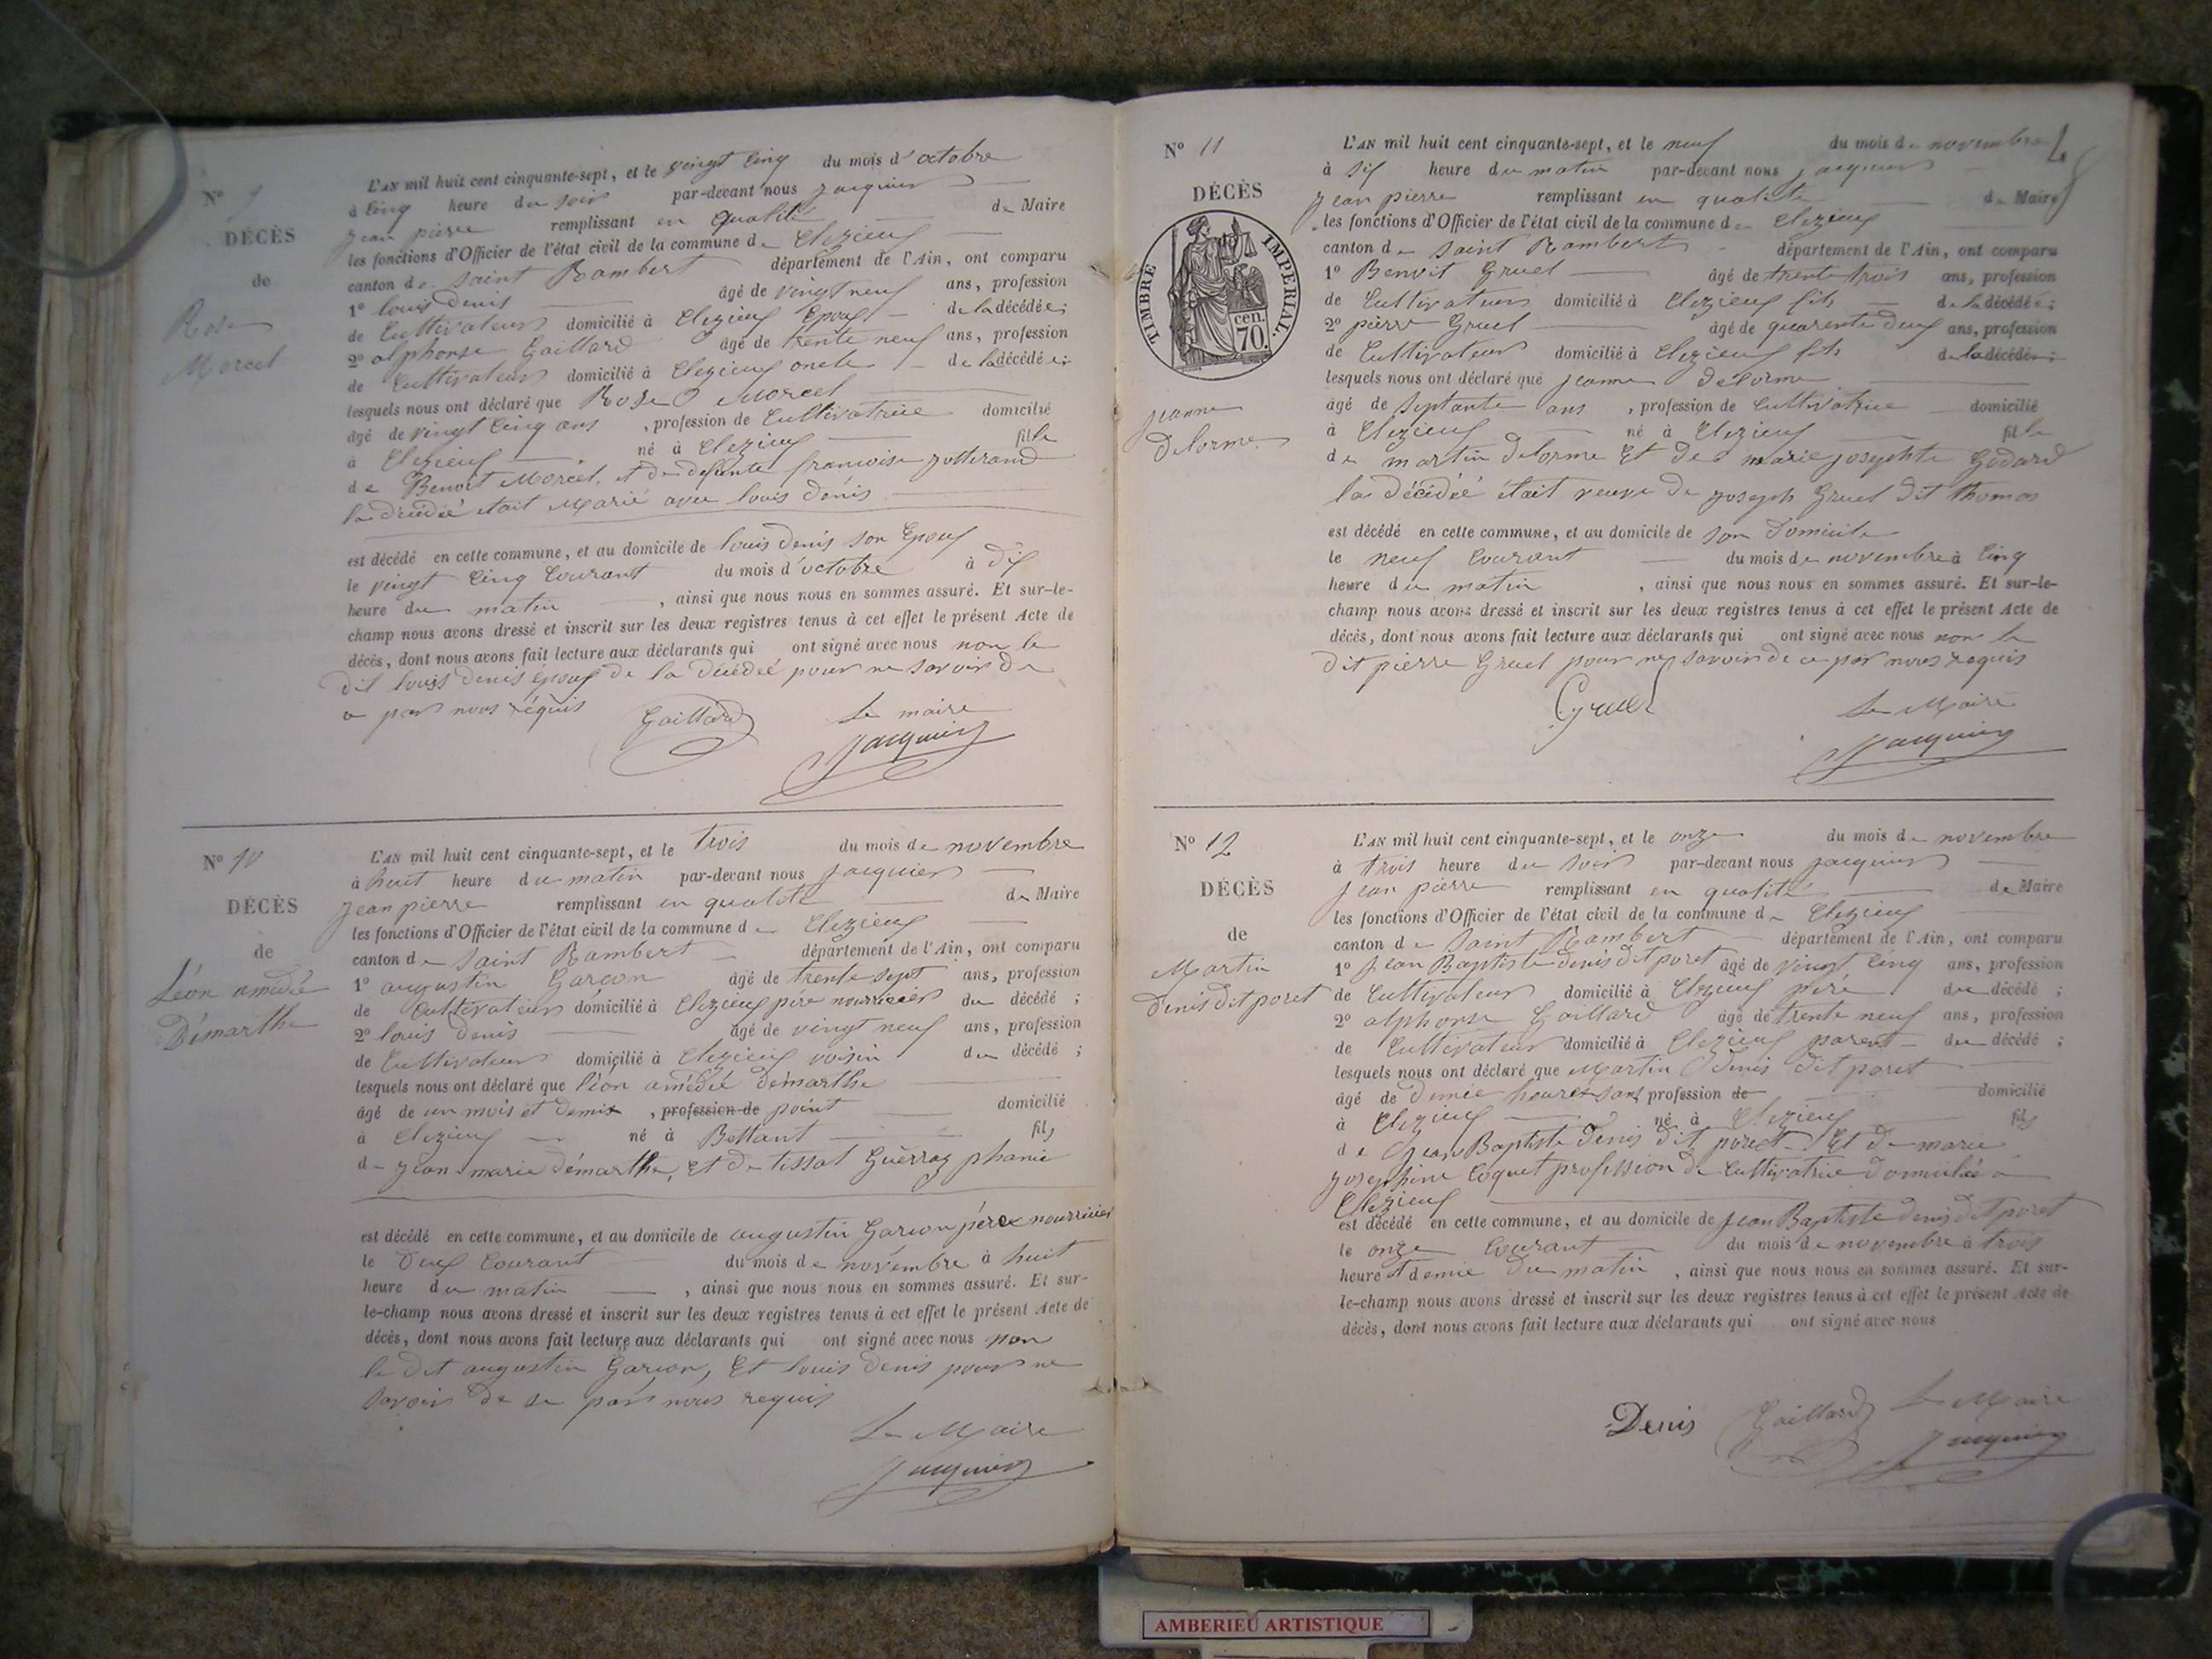 Nº 9
DÉCÈS
de
Rose
Morcel
L'AN mil huit cent cinquante-sept, et le vingt cinq du mois d'octobre
à cinq heure du soir par-devant nous jacquier
jean pierre remplissant en qualité de Maire
les fonctions d'Officier de l'état civil de la commune de Clezieux
canton de Saint Rambert département de l'Ain, ont comparu
1º louis denis âgé de vingt neuf ans, profession
de Cultivateur domicilié à Clezieux Epoux de la décédée;
2º alphonse Gaillard âgé de trente neuf ans, profession
de Cultivateur domicilié à Clezieux oncle de la décédée;
lesquels nous ont déclaré que Rose Morcel
âgé de vingt cinq ans, profession de Cultivatrice domicilié
à Clezieux né à Clezieux fille
de Benoit Morcel, et de defunte francoise jutterand
la décédé était Marié avec louis dénis
est décédé en cette commune, et au domicile de louis denis son Epoux
le vingt cinq Courant du mois d'octobre à dix
heure du matin, ainsi que nous nous en sommes assuré. Et sur-le-
champ nous avons dressé et inscrit sur les deux registres tenus à cet effet le présent Acte de
décès, dont nous avons fait lecture aux déclarants qui ont signé avec nous non le
dit louis denis époux de la décédé pour ne savoir de
ce par nous réquis
Gaillard Le maire
Jacquier
Nº 10
DÉCÈS
de
Léon amédée
Démarthe
L'AN mil huit cent cinquante-sept, et le trois du mois de novembre
à huit heure du matin par-devant nous jacquier
jean pierre remplissant en qualité de Maire
les fonctions d'Officier de l'état civil de la commune de Clezieux
canton de Saint Rambert département de l'Ain, ont comparu
1º augustin Garcon âgé de trente sept ans, profession
de Cultivateur domicilié à Clezieux père nourricier du décédé;
2º louis denis âgé de vingt neuf ans, profession
de Cultivateur domicilié à Clezieux voisin du décédé;
lesquels nous ont déclaré que léon amédée démarthe
âgé de un mois et demie, profession de point domicilié
à Clezieux né à Bettant fils
de jean marie démarthe, et de tissot Guerraz phanie
est décédé en cette commune, et au domicile de augustin Garcon père nourricier
le deux Courant du mois de novembre à huit
heure du matin, ainsi que nous nous en sommes assuré. Et sur-
le-champ nous avons dressé et inscrit sur les deux registres tenus à cet effet le présent Acte de
décès, dont nous avons fait lecture aux déclarants qui ont signé avec nous non
le dit augustin Garcon, Et louis denis pour ne
savoir de se par nous requis
Le Maire
Jacquier
Nº 11
DÉCÈS
TIMBRE IMPÉRIAL.
70. cen.
jeanne
delorme
L'AN mil huit cent cinquante-sept, et le neuf du mois de novembre
à six heure du matin par-devant nous jacquier
jean pierre remplissant en qualité de Maire
les fonctions d'Officier de l'état civil de la commune de Clezieux
canton de Saint Rambert département de l'Ain, ont comparu
1º Benoit Gruel âgé de trente trois ans, profession
de Cultivateur domicilié à Clezieux fils de la décédée;
2º pierre Gruel âgé de quarente deux ans, profession
de Cultivateur domicilié à Clezieux fils de la décédée;
lesquels nous ont déclaré que jeanne delorme
âgé de septante ans, profession de Cultivatrice domicilié
à Clezieux né à Clezieux fille
de martin delorme Et de marie josephte Godard
la décédée était veuve de joseph Gruel dit thomas
est décédé en cette commune, et au domicile de son domicile
le neuf Courant du mois de novembre à cinq
heure du matin, ainsi que nous nous en sommes assuré. Et sur-le-
champ nous avons dressé et inscrit sur les deux registres tenus à cet effet le présent Acte de
décès, dont nous avons fait lecture aux déclarants qui ont signé avec nous non le
dit pierre Gruel pour ne savoir de ce par nous requis
Gruel Le Maire
Jacquier
Nº 12
DÉCÈS
de
Martin
denis dit poret
L'AN mil huit cent cinquante-sept, et le onze du mois de novembre
à trois heure du soir par-devant nous jacquier
Jean pierre remplissant en qualité de Maire
les fonctions d'Officier de l'état civil de la commune de Clezieux
canton de Saint Rambert département de l'Ain, ont comparu
1º Jean Baptiste denis dit poret âgé de vingt cinq ans, profession
de Cultivateur domicilié à Clezieux père du décédé;
2º alphonse Gaillard âgé de trente neuf ans, profession
de Cultivateur domicilié à Clezieux parent du décédé;
lesquels nous ont déclaré que Martin denis dit poret
âgé de demie heure sans profession de domicilié
à Clezieux né à Clezieux fils
de Jean Baptiste denis dit poret Et de marie
josephine Coquet profession de Cultivatrice domiciliée à
Clezieux
est décédé en cette commune, et au domicile de Jean Baptiste denis dit poret
le onze Courant du mois de novembre à trois
heure et demie du matin, ainsi que nous nous en sommes assuré. Et sur-
le-champ nous avons dressé et inscrit sur les deux registres tenus à cet effet le présent Acte de
décès, dont nous avons fait lecture aux déclarants qui ont signé avec nous
Denis Gaillard Le Maire
Jacquier
AMBERIEU ARTISTIQUE